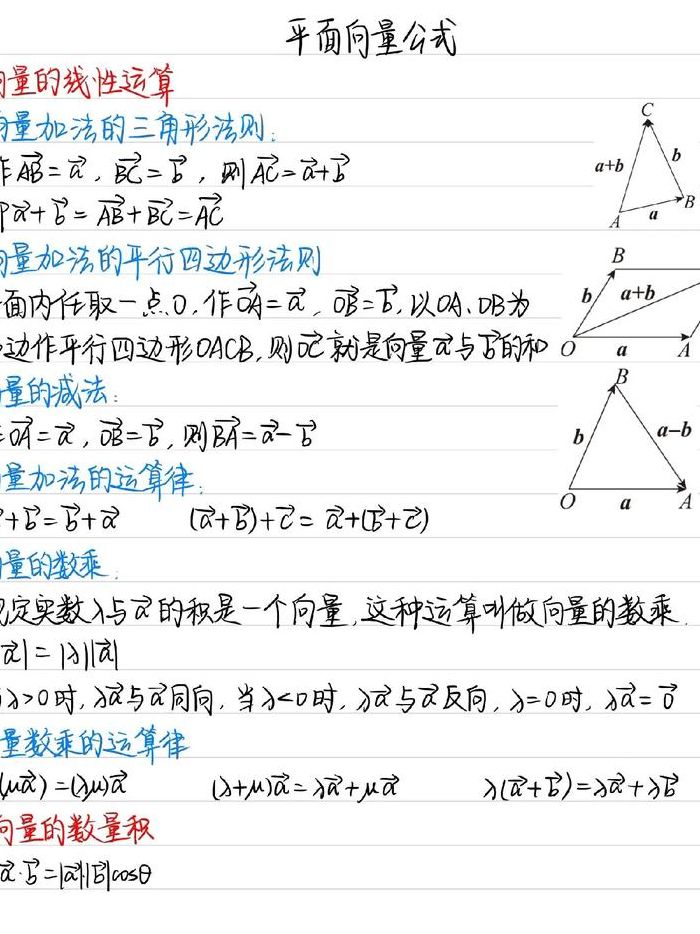 平面向量公式
向量的线性运算
向量加法的三角形法则:
作AB→=a→, BC→=b→, 则AC→=a→+b→
即a→+b→=AB→+BC→=AC→
C
a+b
b
A
a
B
向量加法的平行四边形法则
平面内任取一点O,作OA→=a→, OB→=b→,以OA、OB为
边作平行四边形OACB,则OC→就是向量a→与b→的和
B
b
a+b
O
a
A
向量的减法:
OA→=a→, OB→=b→, 则BA→=a→-b→
B
b
a-b
O
a
A
向量加法的运算律:
+b→=b→+a→ (a→+b→)+c→=a→+(b→+c→)
向量的数乘:
规定实数λ与a→的积是一个向量,这种运算叫做向量的数乘.
a→|=|λ||a→|
λ>0时,λa→与a→同向,当λ<0时,λa→与a→反向,λ=0时,λa→=0→
量数乘的运算律
(μa→)=(λμ)a→ (λ+μ)a→=λa→+μa→ λ(a→+b→)=λa→+λb→
向量的数量积
a→·b→=|a→||b→|cosθ